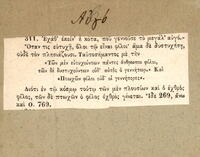 Αὐγό
311. Ἐχάθ' ἐκείν' ἡ κότα, ποὺ γεννοῦσε τὸ μεγάλ' αὐγό.
Ὅταν τις εὐτυχῇ, ὅλοι τῷ εἶναι φίλοι· ἅμα δὲ δυστυχήσῃ,
οὐδὲ τὸν πλησιάζουσι. Ταὐτοσήμαντος μὲ τὴν
«Τῶν μὲν εὐτυχούντων πάντες ἄνθρωποι φίλοι,
τῶν δὲ δυστυχούντων οὐδ' αὐτὸς ὁ γεννήτωρ.» Καὶ
«Πτωχῶν φίλοι οὐδ' οἱ γεννήτορες.»
Διότι ἐν τῷ κόσμῳ τούτῳ τῶν μὲν πλουσίων καὶ ὁ ἐχθρὸς
φίλος, τῶν δὲ πτωχῶν ὁ φίλος ἐχθρὸς γίνεται. Ἴδε 269, ἄνω
καὶ Ο. 769.